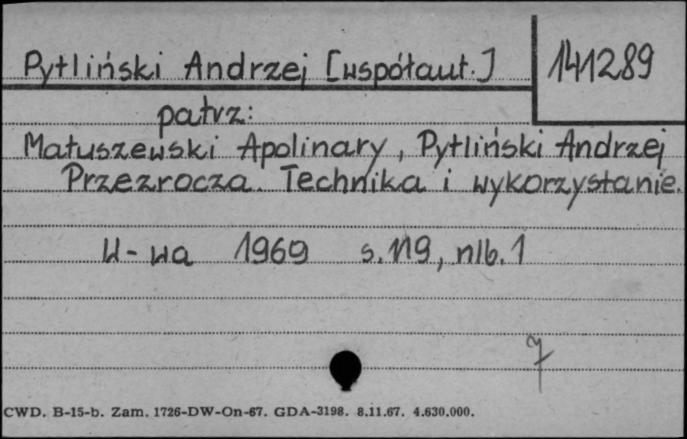 Pytliński Andrzej [współaut.] 141289
patrz:
Matuszewski Apolinary, Pytliński Andrzej
Przezrocza. Technika i wykorzystanie.
W-wa 1969 s. 119, nlb. 1
7
CWD. B-15-b. Zam. 1726-DW-On-67. GDA-3198. 8.11.67. 4.630.000.